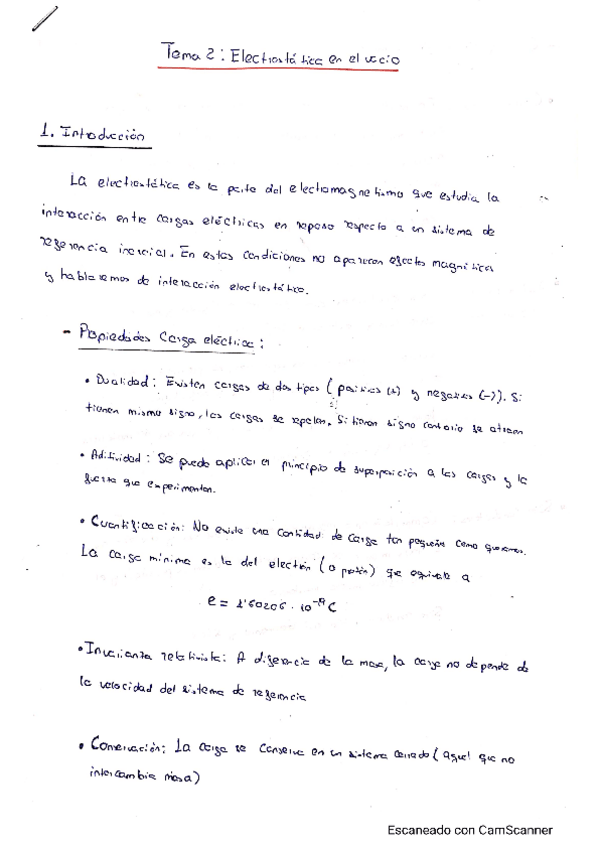 Tema 2: Electrostática en el vacio
1. Introducción
La electrostática es la parte del electromagnetismo que estudia la
interacción entre cargas eléctricas en reposo respecto a un sistema de
referencia inercial. En estas condiciones no aparecen efectos magnéticos
y hablaremos de interacción electrostático.
- Propiedades Carga eléctrica:
• Dualidad: Existen cargas de dos tipos (positivas (+) y negativas (-)). Si
tienen mismo signo, las cargas se repelen. Si tienen signo contrario se atraen
• Aditividad: Se puede aplicar el principio de superposición a las cargas y la
fuerza que experimentan.
• Cuantificación: No existe una cantidad de carga tan pequeña como queramos.
La carga mínima es la del electrón (o protón) que equivale a
e = 1'60206 · 10⁻¹⁹ C
• Invarianza relativista: A diferencia de la masa, la carga no depende de
la velocidad del sistema de referencia
• Conservación: La carga se conserva en un sistema cerrado (aquel que no
intercambia masa)
Escaneado con CamScanner